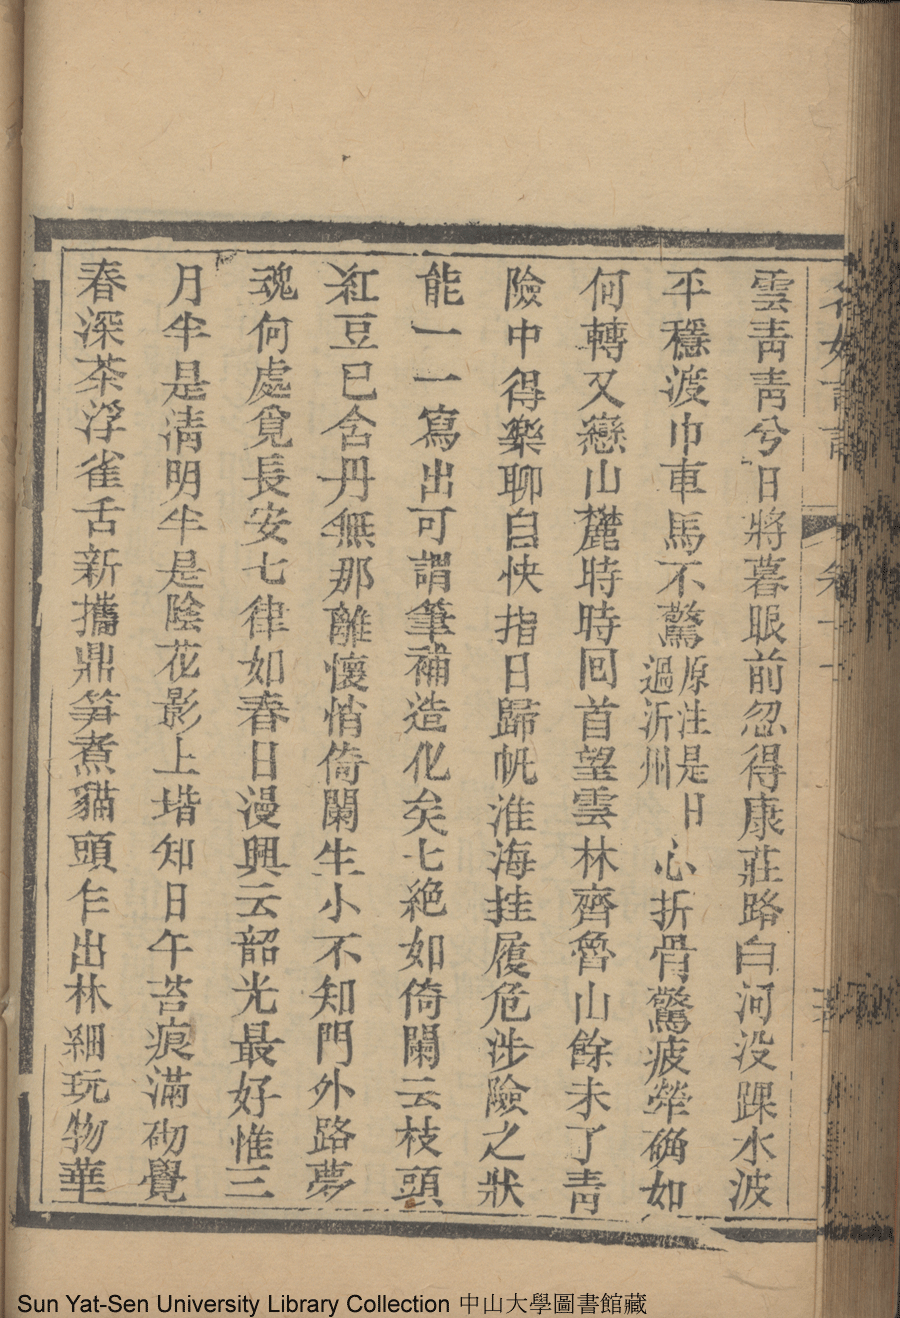 雲青青兮日將暮眼前忽得康莊路白河没踝水波
平穩渡巾車馬不驚原注是日過沂州心折骨驚疲犖确如
何轉又戀山麓時時回首望雲林齊魯山餘未了青
險中得樂聊自快指日歸帆淮海挂履危涉險之狀
能一一寫出可謂筆補造化矣七絶如倚闌云枝頭
紅豆已含丹無那離懷悄倚闌生小不知門外路夢
魂何處覓長安七律如春日漫興云韶光最好惟三
月半是清明半是陰花影上堦知日午苔痕滿砌覺
春深茶浮雀舌新攜鼎筍煮貓頭乍出林細玩物華
Sun Yat-Sen University Library Collection 中山大學圖書館藏